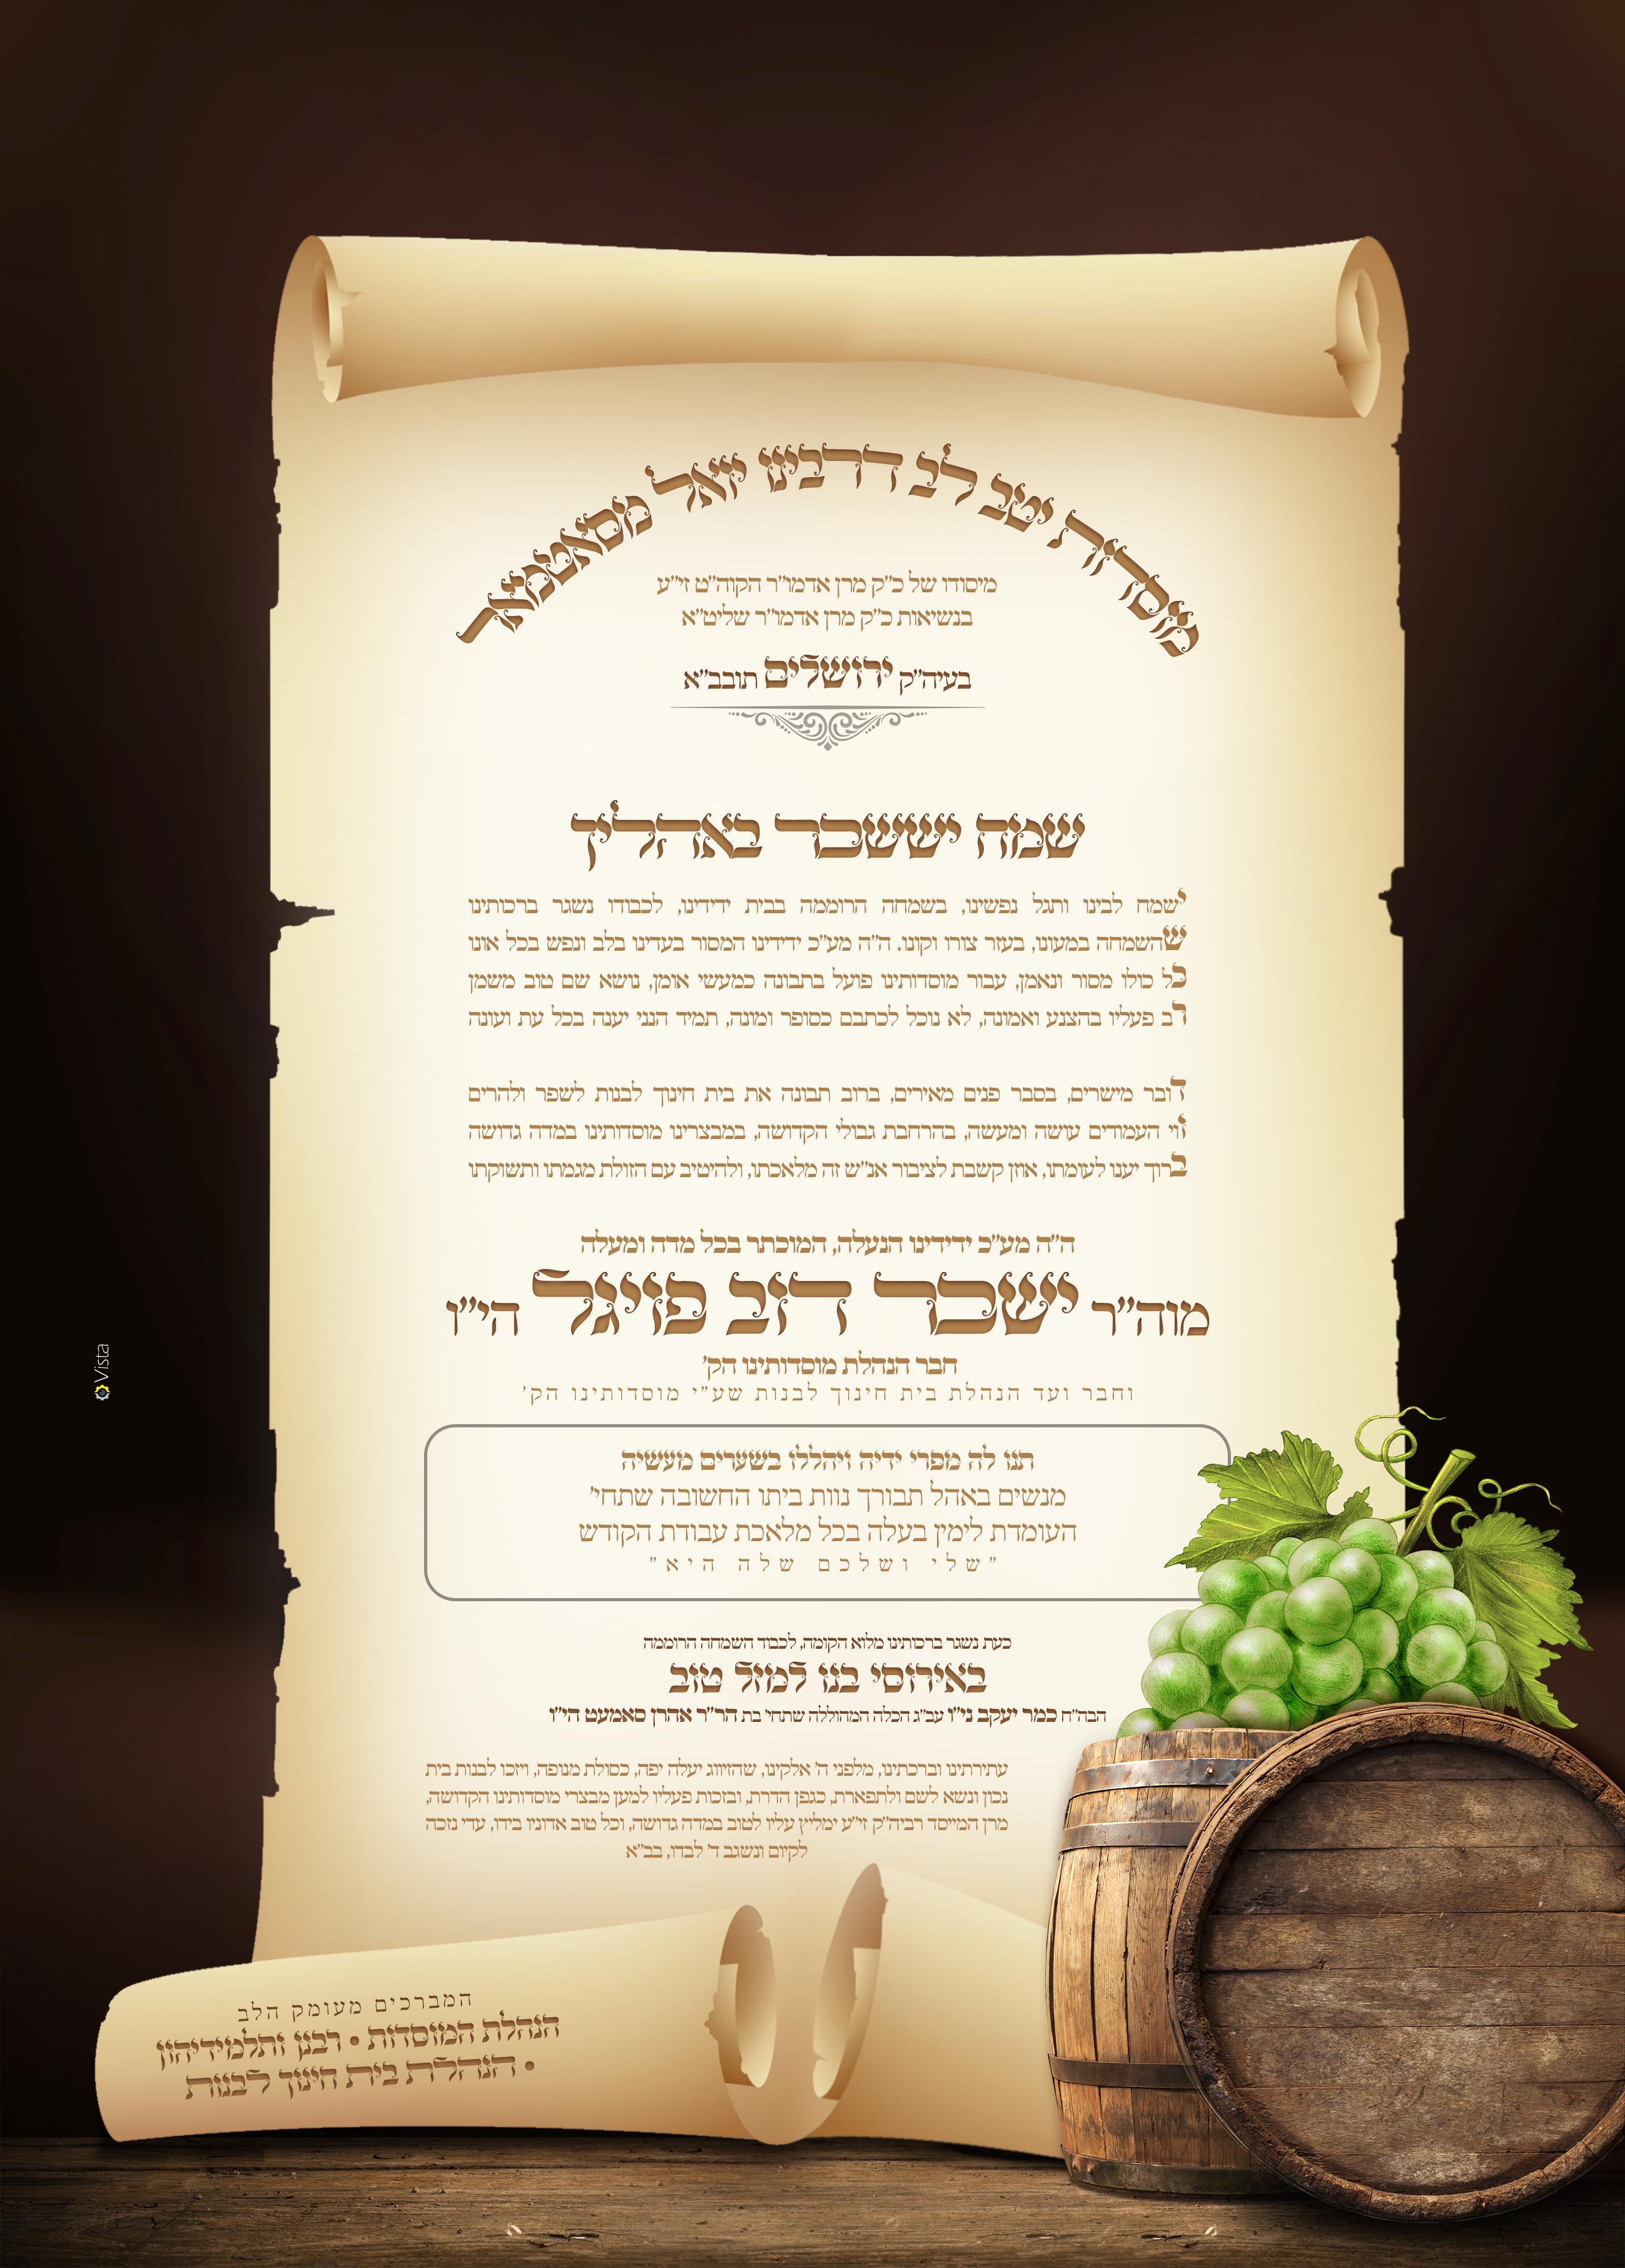 מוסדות יטב לב דרבינו יואל מסאטמאר
מיסודו של כ"ק מרן אדמו"ר הקוה"ט זי"ע
בנשיאות כ"ק מרן אדמו"ר שליט"א
בעיה"ק ירושלים תובב"א
שמח יששכר באהליך
ישמח לבינו ותגל נפשינו, בשמחה הרוממה בבית ידידינו, לכבודו נשגר ברכותינו
שהשמחה במעונו, בעזר צורו וקונו. ה"ה מע"כ ידידינו המסור בעדינו בלב ונפש בכל אונו
כל כולו מסור ונאמן, עבור מוסדותינו פועל בתבונה כמעשי אומן, נושא שם טוב משמן
רב פעליו בהצנע ואמונה, לא נוכל לכתבם כסופר ומונה, תמיד הנני יענה בכל עת ועונה
דובר מישרים, בסבר פנים מאירים, ברוב תבונה את בית חינוך לבנות לשפר ולהרים
ווי העמודים עושה ומעשה, בהרחבת גבולי הקדושה, במבצרינו מוסדותינו במדה גדושה
ברוך יענו לעומתו, אוזן קשבת לציבור אנ"ש זה מלאכתו, ולהיטיב עם הזולת מגמתו ותשוקתו
ה"ה מע"כ ידידינו הנעלה, המוכתר בכל מדה ומעלה
מוה"ר ישכר דוב פויגל הי"ו
חבר הנהלת מוסדותינו הק'
וחבר ועד הנהלת בית חינוך לבנות שע"י מוסדותינו הק'
תנו לה מפרי ידיה ויהללו בשערים מעשיה
מנשים באהל תבורך נוות ביתו החשובה שתחי'
העומדת לימין בעלה בכל מלאכת עבודת הקודש
"שלי ושלכם שלה היא"
כעת נשגר ברכותינו מלוא הקומה, לכבוד השמחה הרוממה
באירוסי בנו למזל טוב
הבה"ח כמר יעקב ני"ו עב"ג הכלה המהוללה שתחי' בת הר"ר אהרן סאמעט הי"ו
עתירתינו וברכתינו, מלפני ה' אלקינו, שהזיווג יעלה יפה, כסולת מנופה, ויזכו לבנות בית
נכון ונשא לשם ולתפארת, כגפן הדרת, ובזכות פעליו למען מבצרי מוסדותינו הקדושה,
מרן המייסד רביה"ק זי"ע ימליץ עליו לטוב במדה גדושה, וכל טוב אדוניו בידו, עדי נזכה
לקיום ונשגב ד' לבדו, בב"א
המברכים מעומק הלב
הנהלת המוסדות • רבנן ותלמידיהון
• הנהלת בית חינוך לבנות
Vista